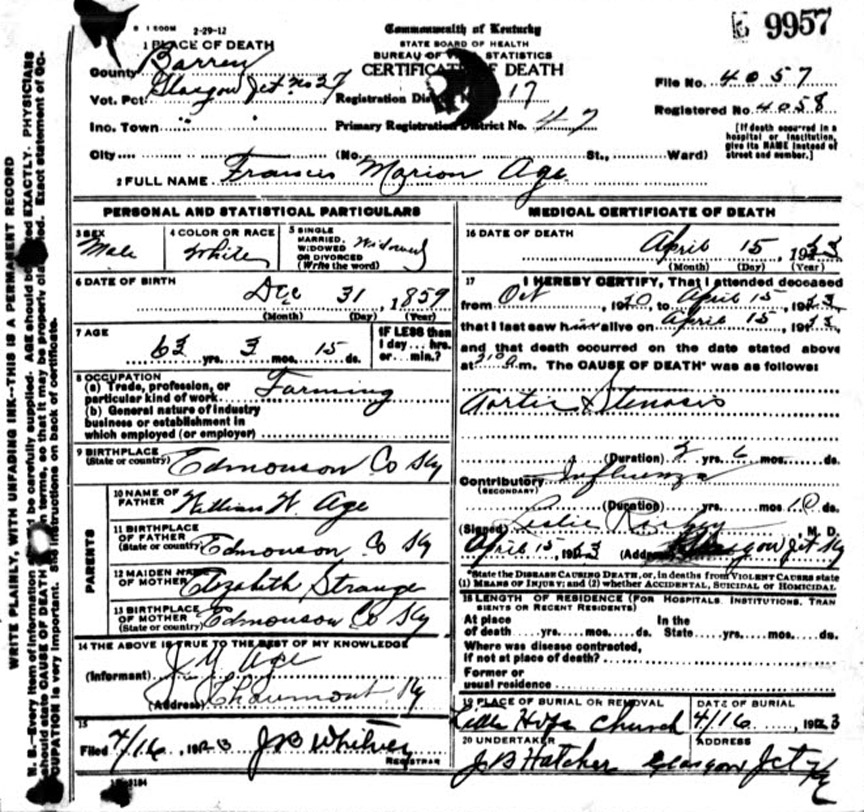 9957
B 1 500M 2-29-12
Commonwealth of Kentucky
STATE BOARD OF HEALTH
BUREAU OF STATISTICS
CERTIFICATE OF DEATH
1 PLACE OF DEATH
County Barren
Vot. Pct. Glasgow Jct. No 27 Registration District No. 17
File No. 4057
Registered No. 4058
Inc. Town Primary Registration District No. 47
[If death occurred in a
hospital or institution,
give its NAME instead of
street and number.]
City (No. St., Ward)
2 FULL NAME Francis Marion Age
PERSONAL AND STATISTICAL PARTICULARS
3 SEX Male
4 COLOR OR RACE White
5 SINGLE
MARRIED,
WIDOWED
OR DIVORCED
(Write the word) Widowed
6 DATE OF BIRTH
Dec 31, 1859
(Month) (Day) (Year)
7 AGE
63 yrs. 3 mos. 15 ds.
IF LESS than
1 day... hrs.
or... min.?
8 OCCUPATION
(a) Trade, profession, or
particular kind of work Farming
(b) General nature of industry
business or establishment in
which employed (or employer)
9 BIRTHPLACE
(State or country) Edmonson Co Ky
PARENTS
10 NAME OF
FATHER William W. Age
11 BIRTHPLACE
OF FATHER
(State or country) Edmonson Co Ky
12 MAIDEN NAME
OF MOTHER Elizabeth Strange
13 BIRTHPLACE
OF MOTHER
(State or country) Edmonson Co Ky
14 THE ABOVE IS TRUE TO THE BEST OF MY KNOWLEDGE
(Informant) Age
(Address) Chaumont, Ky
15
Filed 4/16, 1923 J B Whitney
REGISTRAR
MEDICAL CERTIFICATE OF DEATH
16 DATE OF DEATH
April 15, 1923
(Month) (Day) (Year)
17 I HEREBY CERTIFY, That I attended deceased
from Oct 1920, to April 15, 1923,
that I last saw him alive on April 15, 1923,
and that death occurred on the date stated above
at m. The CAUSE OF DEATH* was as follows:
Aortic Stenosis
(Duration) 2 yrs. 6 mos. ds.
Contributory Influenza
(SECONDARY)
(Duration) yrs. mos 10 ds.
(Signed) Leslie M. D.
April 15, 1923 (Address) Glasgow Jct Ky
*State the DISEASE CAUSING DEATH, or, in deaths from VIOLENT CAUSES state
(1) MEANS OF INJURY; and (2) whether ACCIDENTAL, SUICIDAL or HOMICIDAL
18 LENGTH OF RESIDENCE (FOR HOSPITALS, INSTITUTIONS, TRAN
SIENTS OR RECENT RESIDENTS)
At place In the
of death yrs. mos. ds. State yrs. mos. ds.
Where was disease contracted,
if not at place of death?
Former or
usual residence
19 PLACE OF BURIAL OR REMOVAL
Little Hope Church
DATE OF BURIAL
4/16, 1923
20 UNDERTAKER
J B Hatcher
ADDRESS
Glasgow Jct Ky
WRITE PLAINLY, WITH UNFADING INK--THIS IS A PERMANENT RECORD
N. B.--Every item of information should be carefully supplied. AGE should be stated EXACTLY. PHYSICIANS
should state CAUSE OF DEATH in plain terms, so that it may be properly classified. Exact statement of OC-
CUPATION is very important. See instructions on back of certificate.